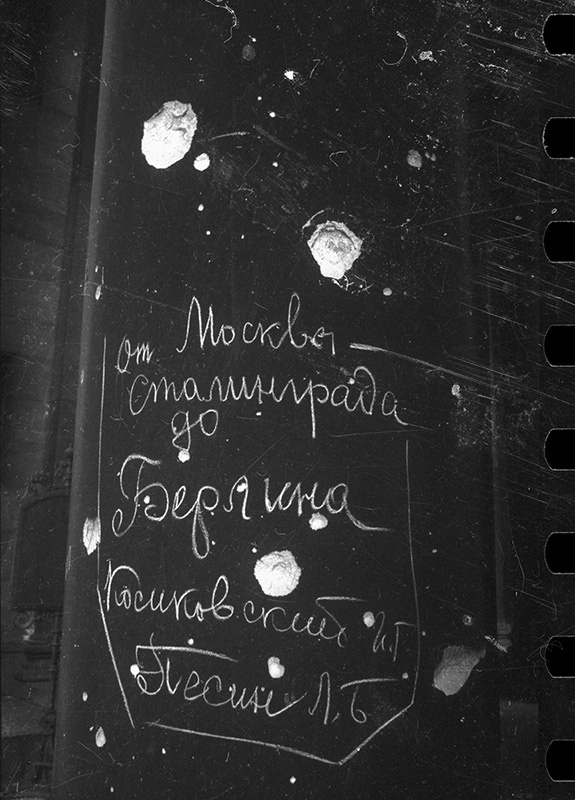 от Москвы
Сталинграда
до
Берлина
Косиковский И.Г.
Песин Л.Б